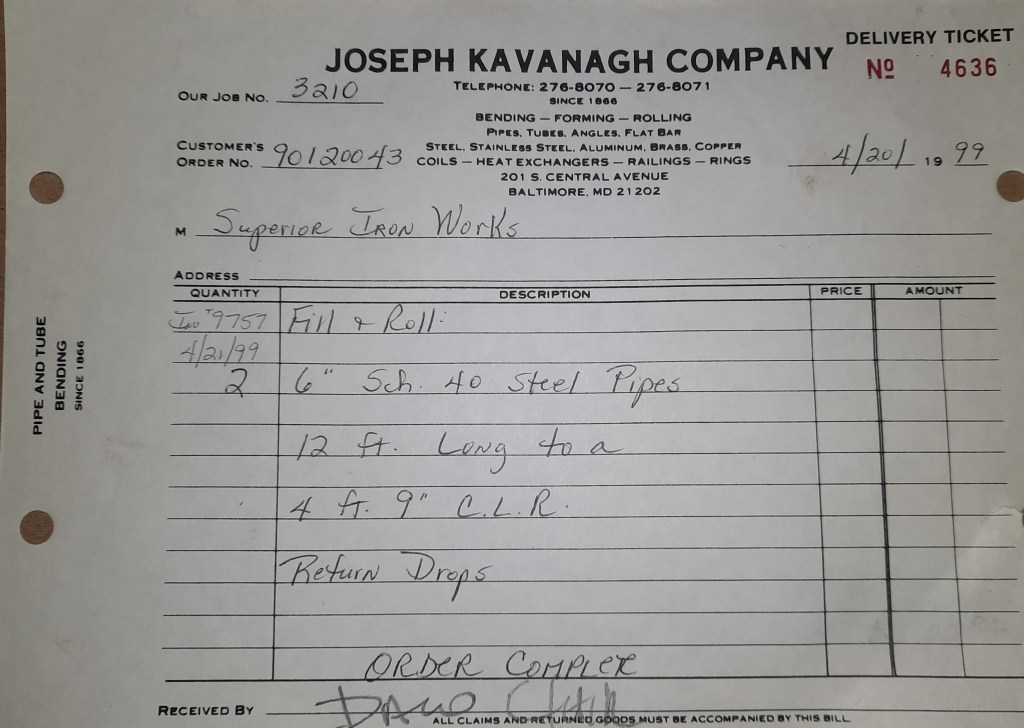 DELIVERY TICKET
JOSEPH KAVANAGH COMPANY
Nº 4636
OUR JOB NO. 3210
TELEPHONE: 276-8070 — 276-8071
SINCE 1866
BENDING — FORMING — ROLLING
PIPES, TUBES, ANGLES, FLAT BAR
CUSTOMER'S ORDER NO. 90120043
STEEL, STAINLESS STEEL, ALUMINUM, BRASS, COPPER
COILS — HEAT EXCHANGERS — RAILINGS — RINGS
4/20/ 19 99
201 S. CENTRAL AVENUE
BALTIMORE, MD 21202
M Superior Iron Works
ADDRESS
QUANTITY DESCRIPTION PRICE AMOUNT
Inv #9757 Fill & Roll:
4/21/99
2 6" Sch. 40 Steel Pipes
12 ft. Long to a
4 ft. 9" C.L.R.
Return Drops
ORDER COMPLETE
RECEIVED BY
ALL CLAIMS AND RETURNED GOODS MUST BE ACCOMPANIED BY THIS BILL.
PIPE AND TUBE
BENDING
SINCE 1866